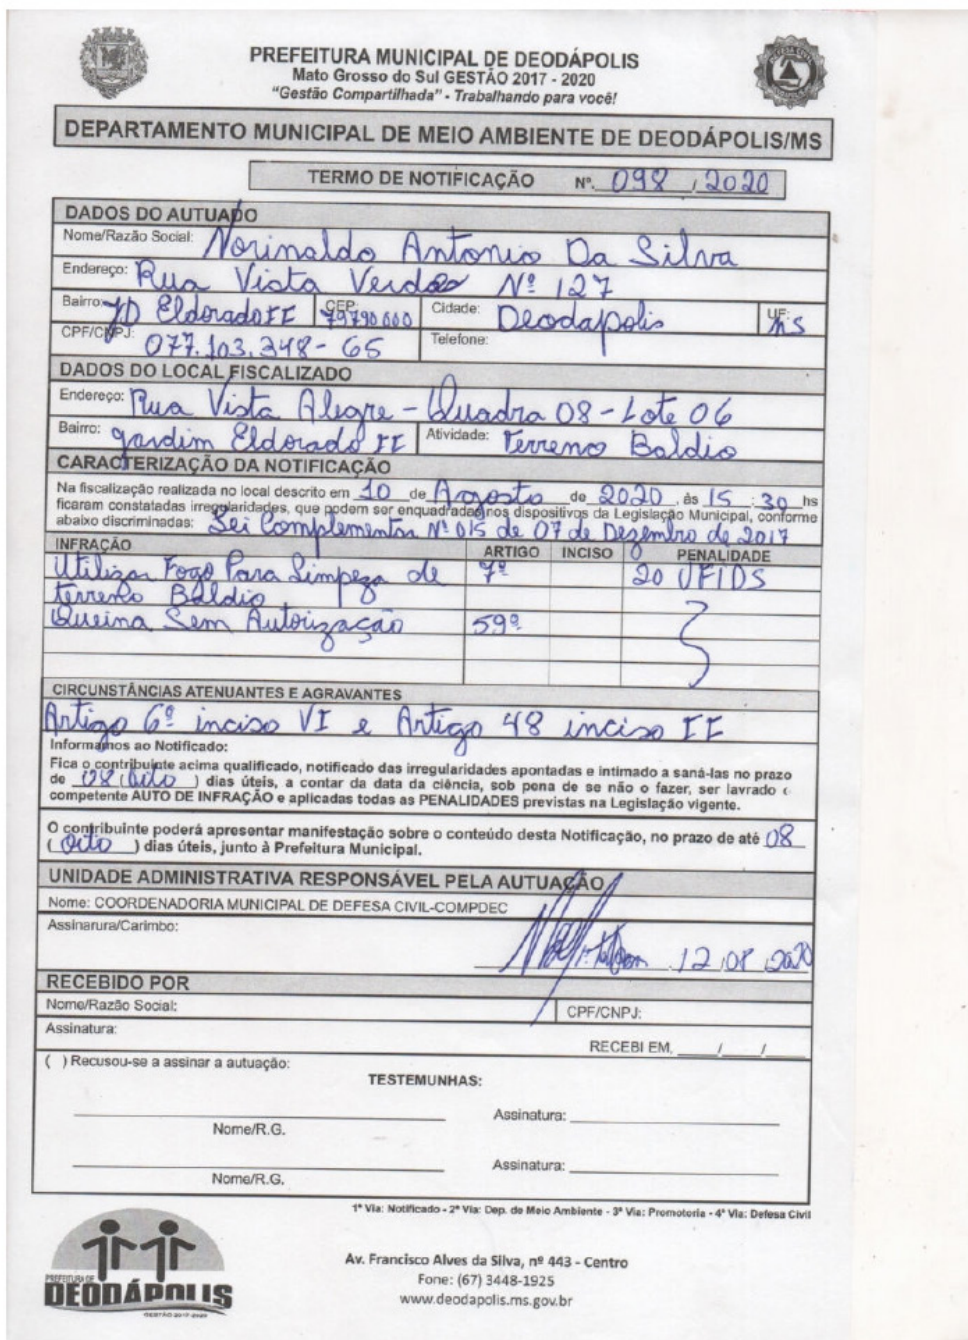 PREFEITURA MUNICIPAL DE DEODÁPOLIS
Mato Grosso do Sul GESTÃO 2017 - 2020
"Gestão Compartilhada" - Trabalhando para você!
DEPARTAMENTO MUNICIPAL DE MEIO AMBIENTE DE DEODÁPOLIS/MS
TERMO DE NOTIFICAÇÃO Nº. 098 / 2020
DADOS DO AUTUADO
Nome/Razão Social: Norinaldo Antonio Da Silva
Endereço: Rua Vista Verdes Nº 127
Bairro: JD Eldorado II CEP: 79790000 Cidade: Deodapolis UF: MS
CPF/CNPJ: 077.103.348-65 Telefone:
DADOS DO LOCAL FISCALIZADO
Endereço: Rua Vista Alegre - Quadra 08 - Lote 06
Bairro: Jardim Eldorado II Atividade: Terreno Baldio
CARACTERIZAÇÃO DA NOTIFICAÇÃO
Na fiscalização realizada no local descrito em 10 de Agosto de 2020, às 15 : 30 hs
ficaram constatadas irregularidades, que podem ser enquadradas nos dispositivos da Legislação Municipal, conforme
abaixo discriminadas: Lei Complementar Nº 015 de 07 de Dezembro de 2017
INFRAÇÃO ARTIGO INCISO PENALIDADE
Utilizar Fogo Para Limpeza de 7º 20 UFIDS
terreno Baldio
Queima Sem Autorização 59º
CIRCUNSTÂNCIAS ATENUANTES E AGRAVANTES
Artigo 6º inciso VI e Artigo 48 inciso II
Informamos ao Notificado:
Fica o contribuinte acima qualificado, notificado das irregularidades apontadas e intimado a saná-las no prazo
de 08 (oito) dias úteis, a contar da data da ciência, sob pena de se não o fazer, ser lavrado o
competente AUTO DE INFRAÇÃO e aplicadas todas as PENALIDADES previstas na Legislação vigente.
O contribuinte poderá apresentar manifestação sobre o conteúdo desta Notificação, no prazo de até 08
(oito) dias úteis, junto à Prefeitura Municipal.
UNIDADE ADMINISTRATIVA RESPONSÁVEL PELA AUTUAÇÃO
Nome: COORDENADORIA MUNICIPAL DE DEFESA CIVIL-COMPDEC
Assinarura/Carimbo:
12 / 08 / 2020
RECEBIDO POR
Nome/Razão Social: CPF/CNPJ:
Assinatura:
RECEBI EM, ____/____/____
( ) Recusou-se a assinar a autuação:
TESTEMUNHAS:
Assinatura:
Nome/R.G.
Assinatura:
Nome/R.G.
1ª Via: Notificado - 2ª Via: Dep. de Meio Ambiente - 3ª Via: Promotoria - 4ª Via: Defesa Civil
PREFEITURA DE
DEODÁPOLIS
GESTÃO 2017-2020
Av. Francisco Alves da Silva, nº 443 - Centro
Fone: (67) 3448-1925
www.deodapolis.ms.gov.br